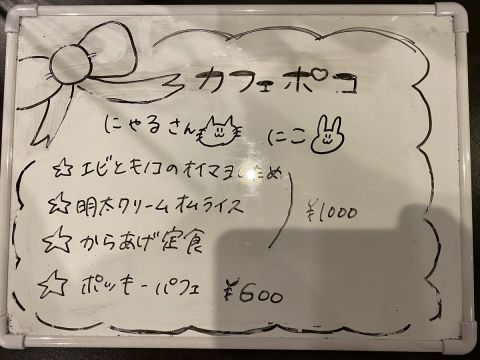 カフェポコ
にゃるさん にこ
☆ エビとキノコのオイマヨ炒め
☆ 明太クリームオムライス
☆ からあげ定食
¥1000
☆ ポッキーパフェ ¥600